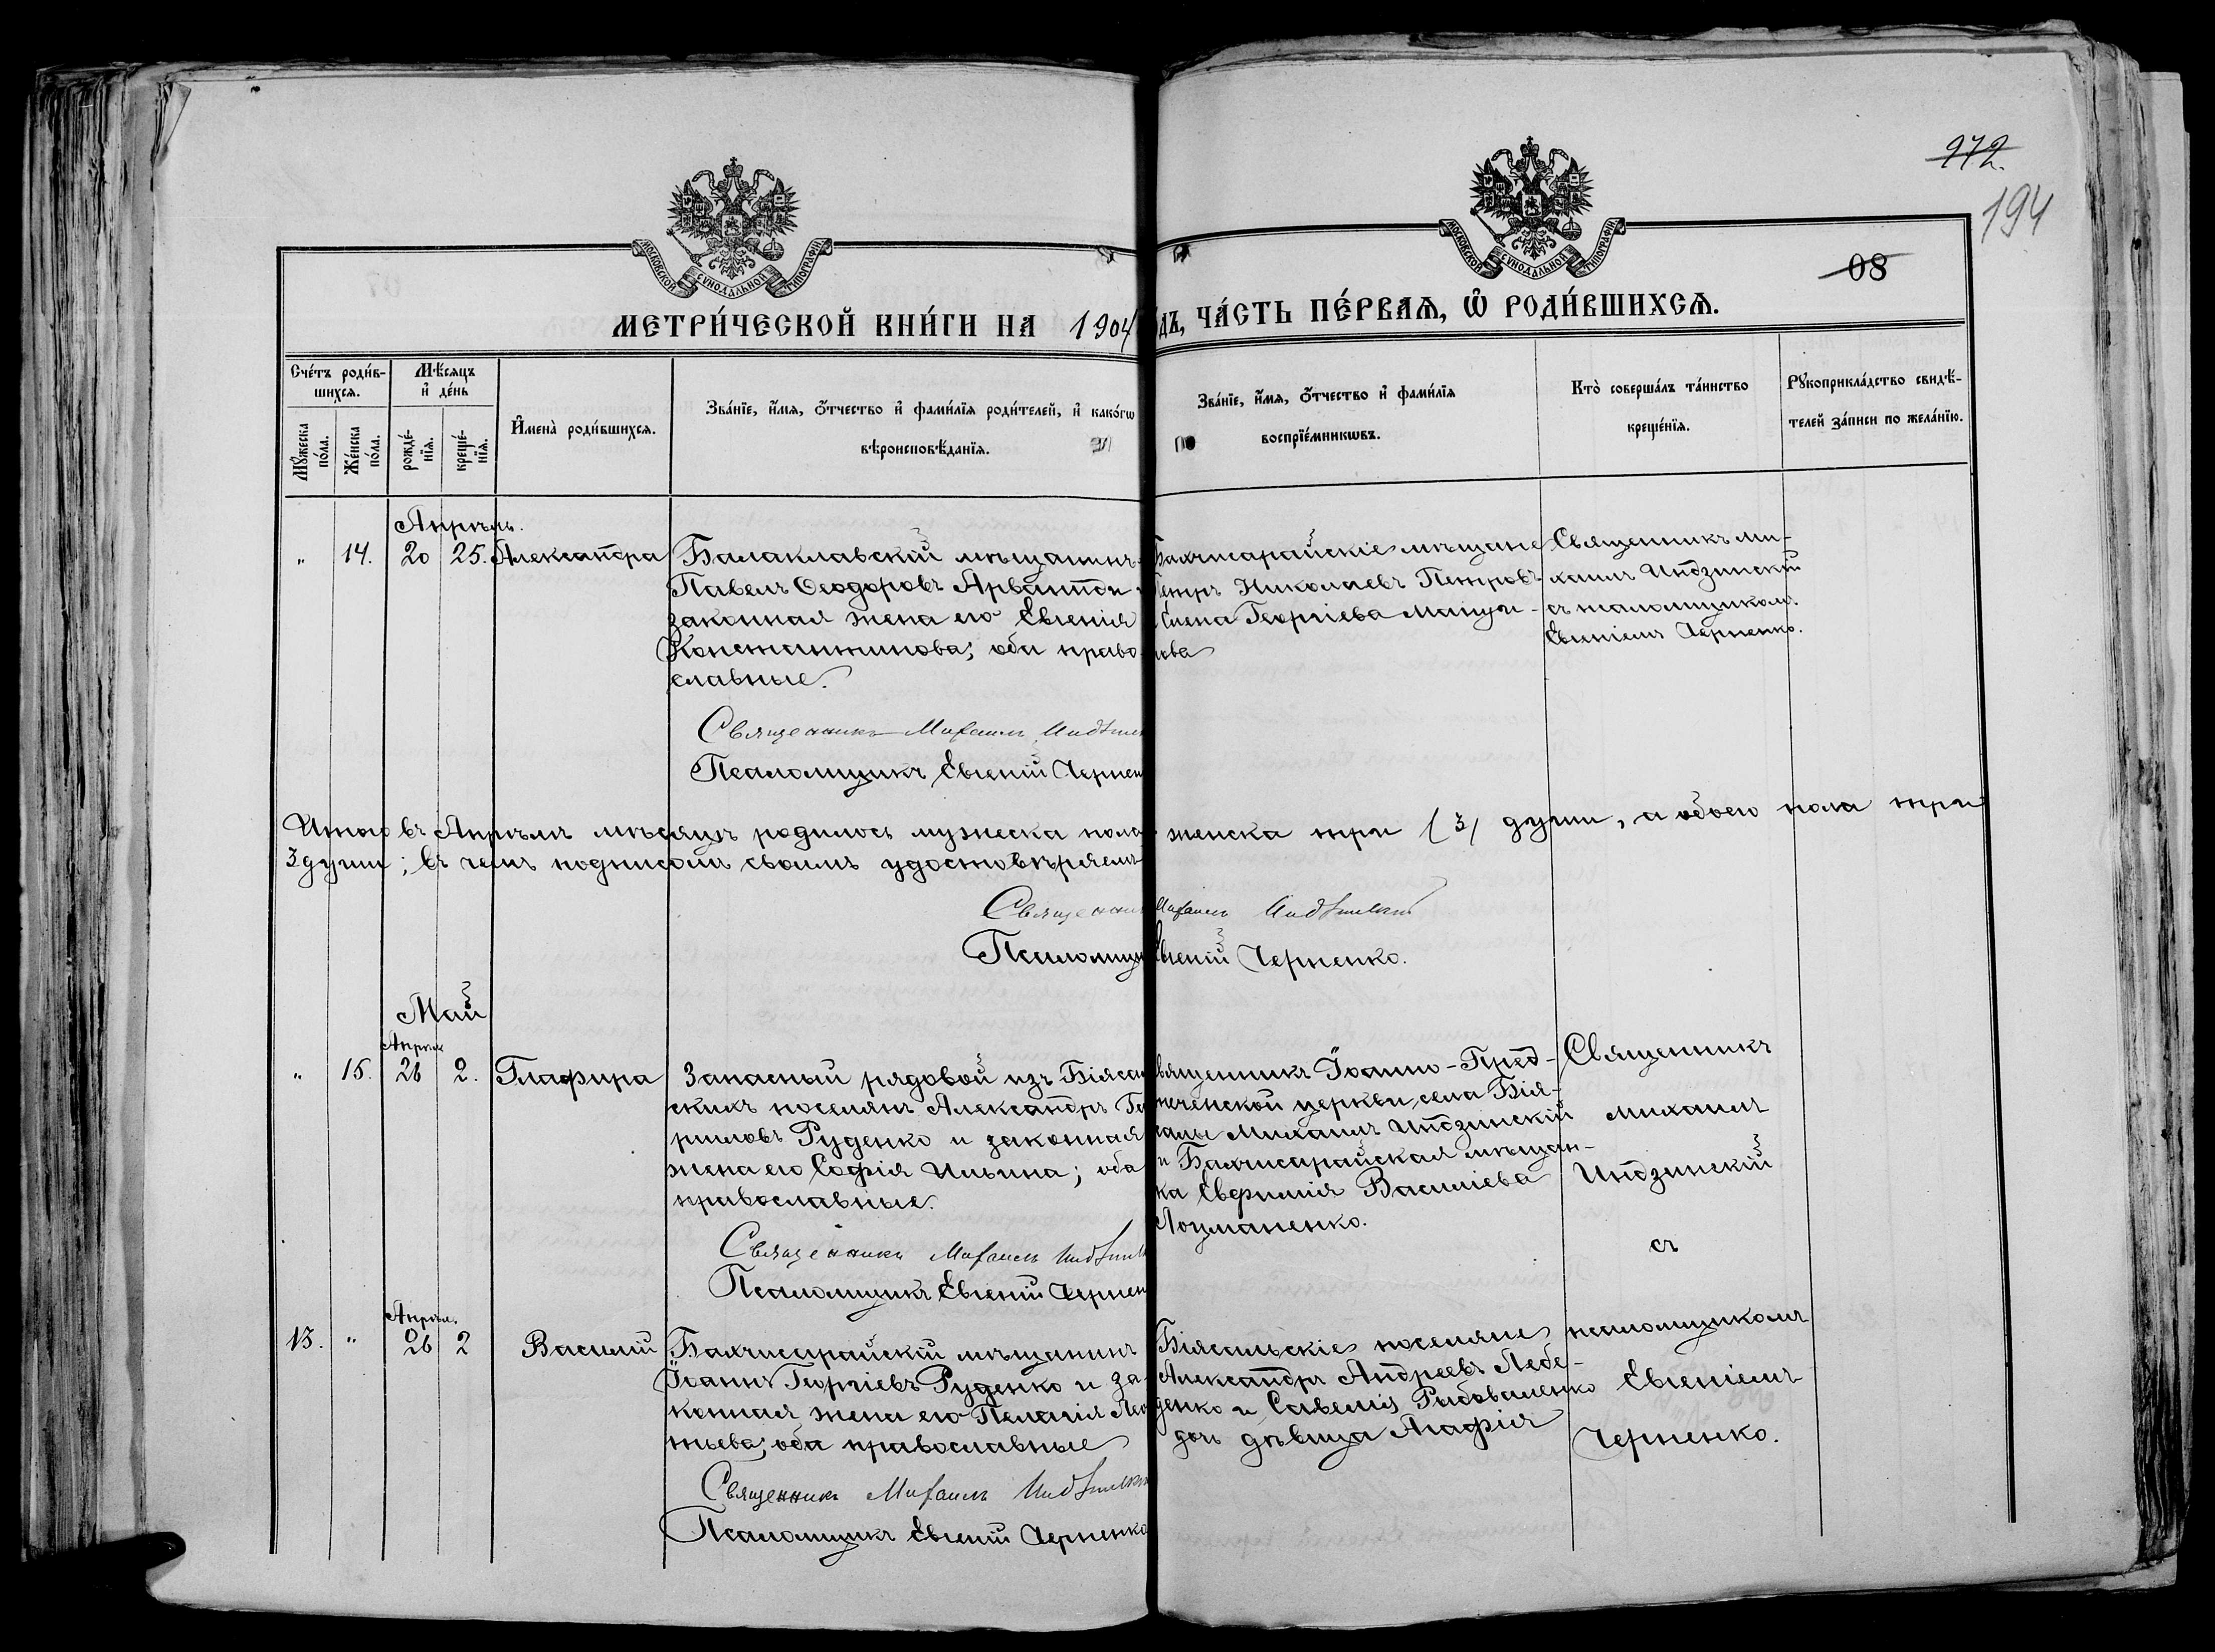 972.
194
08
МОСКОВСКОЙ СѴНОДАЛЬНОЙ ТИПОГРАФІИ
МОСКОВСКОЙ СѴНОДАЛЬНОЙ ТИПОГРАФІИ
МЕТРИ́ЧЕСКОЙ КНИ́ГИ НА 1904
дъ, ЧА́СТЬ ПЕ́РВАѦ, Ѡ҆ РОДИ́ВШИХСѦ.
Сче́тъ роди́в-
шихсѧ.
Мꙋ́жеска
по́ла.
Же́нска
по́ла.
Мѣ́сѧцъ
и҆ де́нь
рожде́-
нїѧ.
креще́-
нїѧ.
И҆мена̀ роди́вшихсѧ.
Зва́нїе, и҆́мѧ, ѻ҆́тчество и҆ фами́лїѧ роди́телей, и҆ како́гѡ
вѣроисповѣ́данїѧ.
Зва́нїе, и҆́мѧ, ѻ҆́тчество и҆ фами́лїѧ
воспрїе́мникѡвъ.
Кто̀ соверша́лъ та́инство
креще́нїѧ.
Рꙋкоприкла́дство свидѣ́-
телей за́писи по жела́нїю.
Апрѣль.
" 14. 20 25. Александра
Балаклавскій мѣщанинъ
Павелъ Ѳеодоровъ Арванити
законная жена его Евгенія
Константинова; оба право-
славные.
Священникъ Михаилъ Индзинс
Псаломщикъ Евгеній Чернен
Бахчисарайскіе мѣщане
Петръ Николаевъ Петровъ
Елена Георгіева
нова
Священникъ Ми-
хаилъ Индзинскій
съ псаломщикомъ
Евгеніемъ Черненко.
Итого въ Апрѣлѣ мѣсяцѣ родилось мужеска пола женска три (3) души, а обоего пола три
3 души; въ чемъ подписомъ своимъ удостовѣряемъ
Священни Михаилъ Индзинскій
Псаломщи Евгеній Черненко.
Май
Апрѣля
" 15. 26 2. Глафира
Запасный рядовой изъ Біяса
скихъ поселянъ Александръ Га
риловъ Руденко и законная
жена его Софія Ильина; оба
православные.
Священникъ Михаилъ Индзинс
Псаломщикъ Евгеній Чернен
вященникъ Іоанно-Пред-
теченской церкви села Бія-
салы Михаилъ Индзинскій
и Бахчисарайская мѣщан-
ка Евфимія Василіева
Лоцманенко.
Священникъ
Михаилъ
Индзинскій
съ
псаломщикомъ
Евгеніемъ
Черненко.
Апрѣл.
13. " 26 2 Василій
Бахчисарайскій мѣщанинъ
Іоаннъ Георгіевъ Руденко и за-
конная жена его Пелагія Лео
тьева; оба православные
Священникъ Михаилъ Индзински
Псаломщикъ Евгеній Черненко
Біясальскіе поселяне
Александръ Андреевъ Лебе-
денко и Савелія Рыбоваленко
дочь дѣвица Агафія